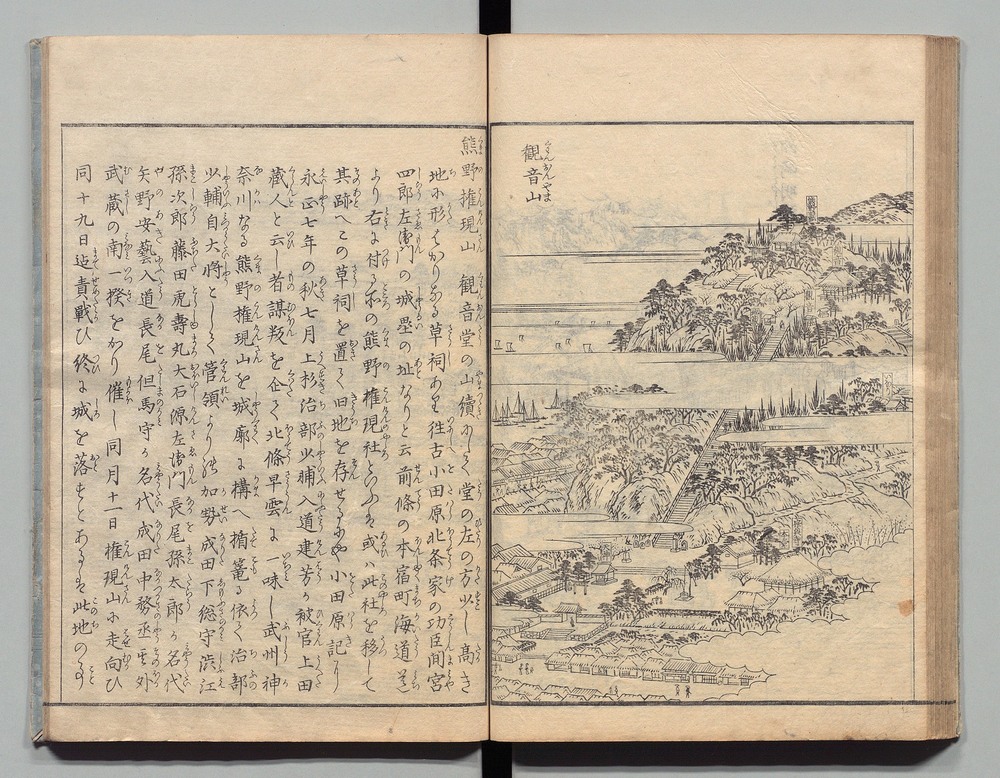 観音山
熊野権現山　観音堂の山續にて堂の左の方少し高き
地に形はかりなる草祠あり往古小田原北条家の功臣間宮
四郎左衛門の城塁の址なりと云前條の本宿町海道
より右に付る所の熊野権現社といふも或ハ此社を移して
其跡へこの草祠を置て旧地を存せるにや小田原記
永正七年の秋七月上杉治部少輔入道建芳か被官上田
蔵人と云し者謀叛を企て北條早雲に一味し武州神
奈川なる熊野権現山を城廓に構へ楯篭る依て治部
少輔自大将として管領よりの加勢成田下総守渋江
孫次郎藤田虎壽丸大石源左衛門長尾孫太郎か名代
矢野安藝入道長尾但馬守か名代成田中務丞其外
武蔵の南一揆をかり催し同月十一日権現山に走向ひ
同十九日迄責戦ひ終に城を落すとあるも此地の